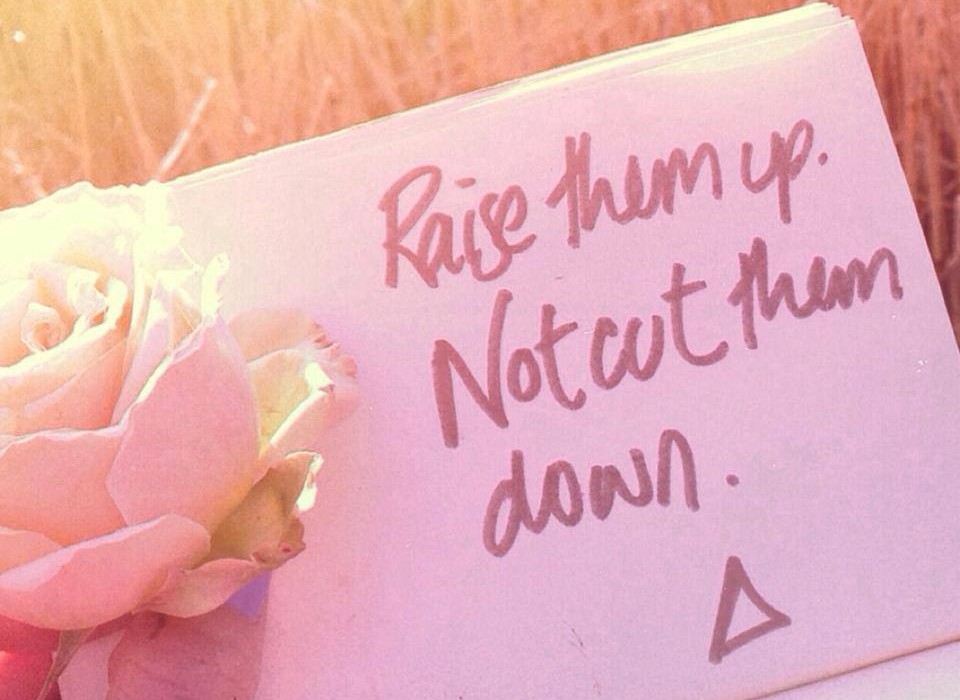 Raise them up.
Not cut them
down.